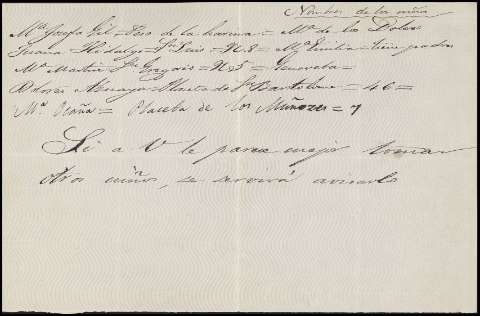 Nombres de la niña
Mª Josefa Gil = Peso de la harina = Mª de los Dolores
Juana Hidalgo = Sn Luis = N. 8 = Mª Emilia = tiene padres
Mª Martin Sn Gregorio = N. 5 = Genoveba =
Dolores Amaya = Plazeta de Sn Bartolome = 46 =
Mª Ocaña = Placeta de los Muñozes = 7
Si a V le parece mejor tomar
otros niños, se servirá avisarlo